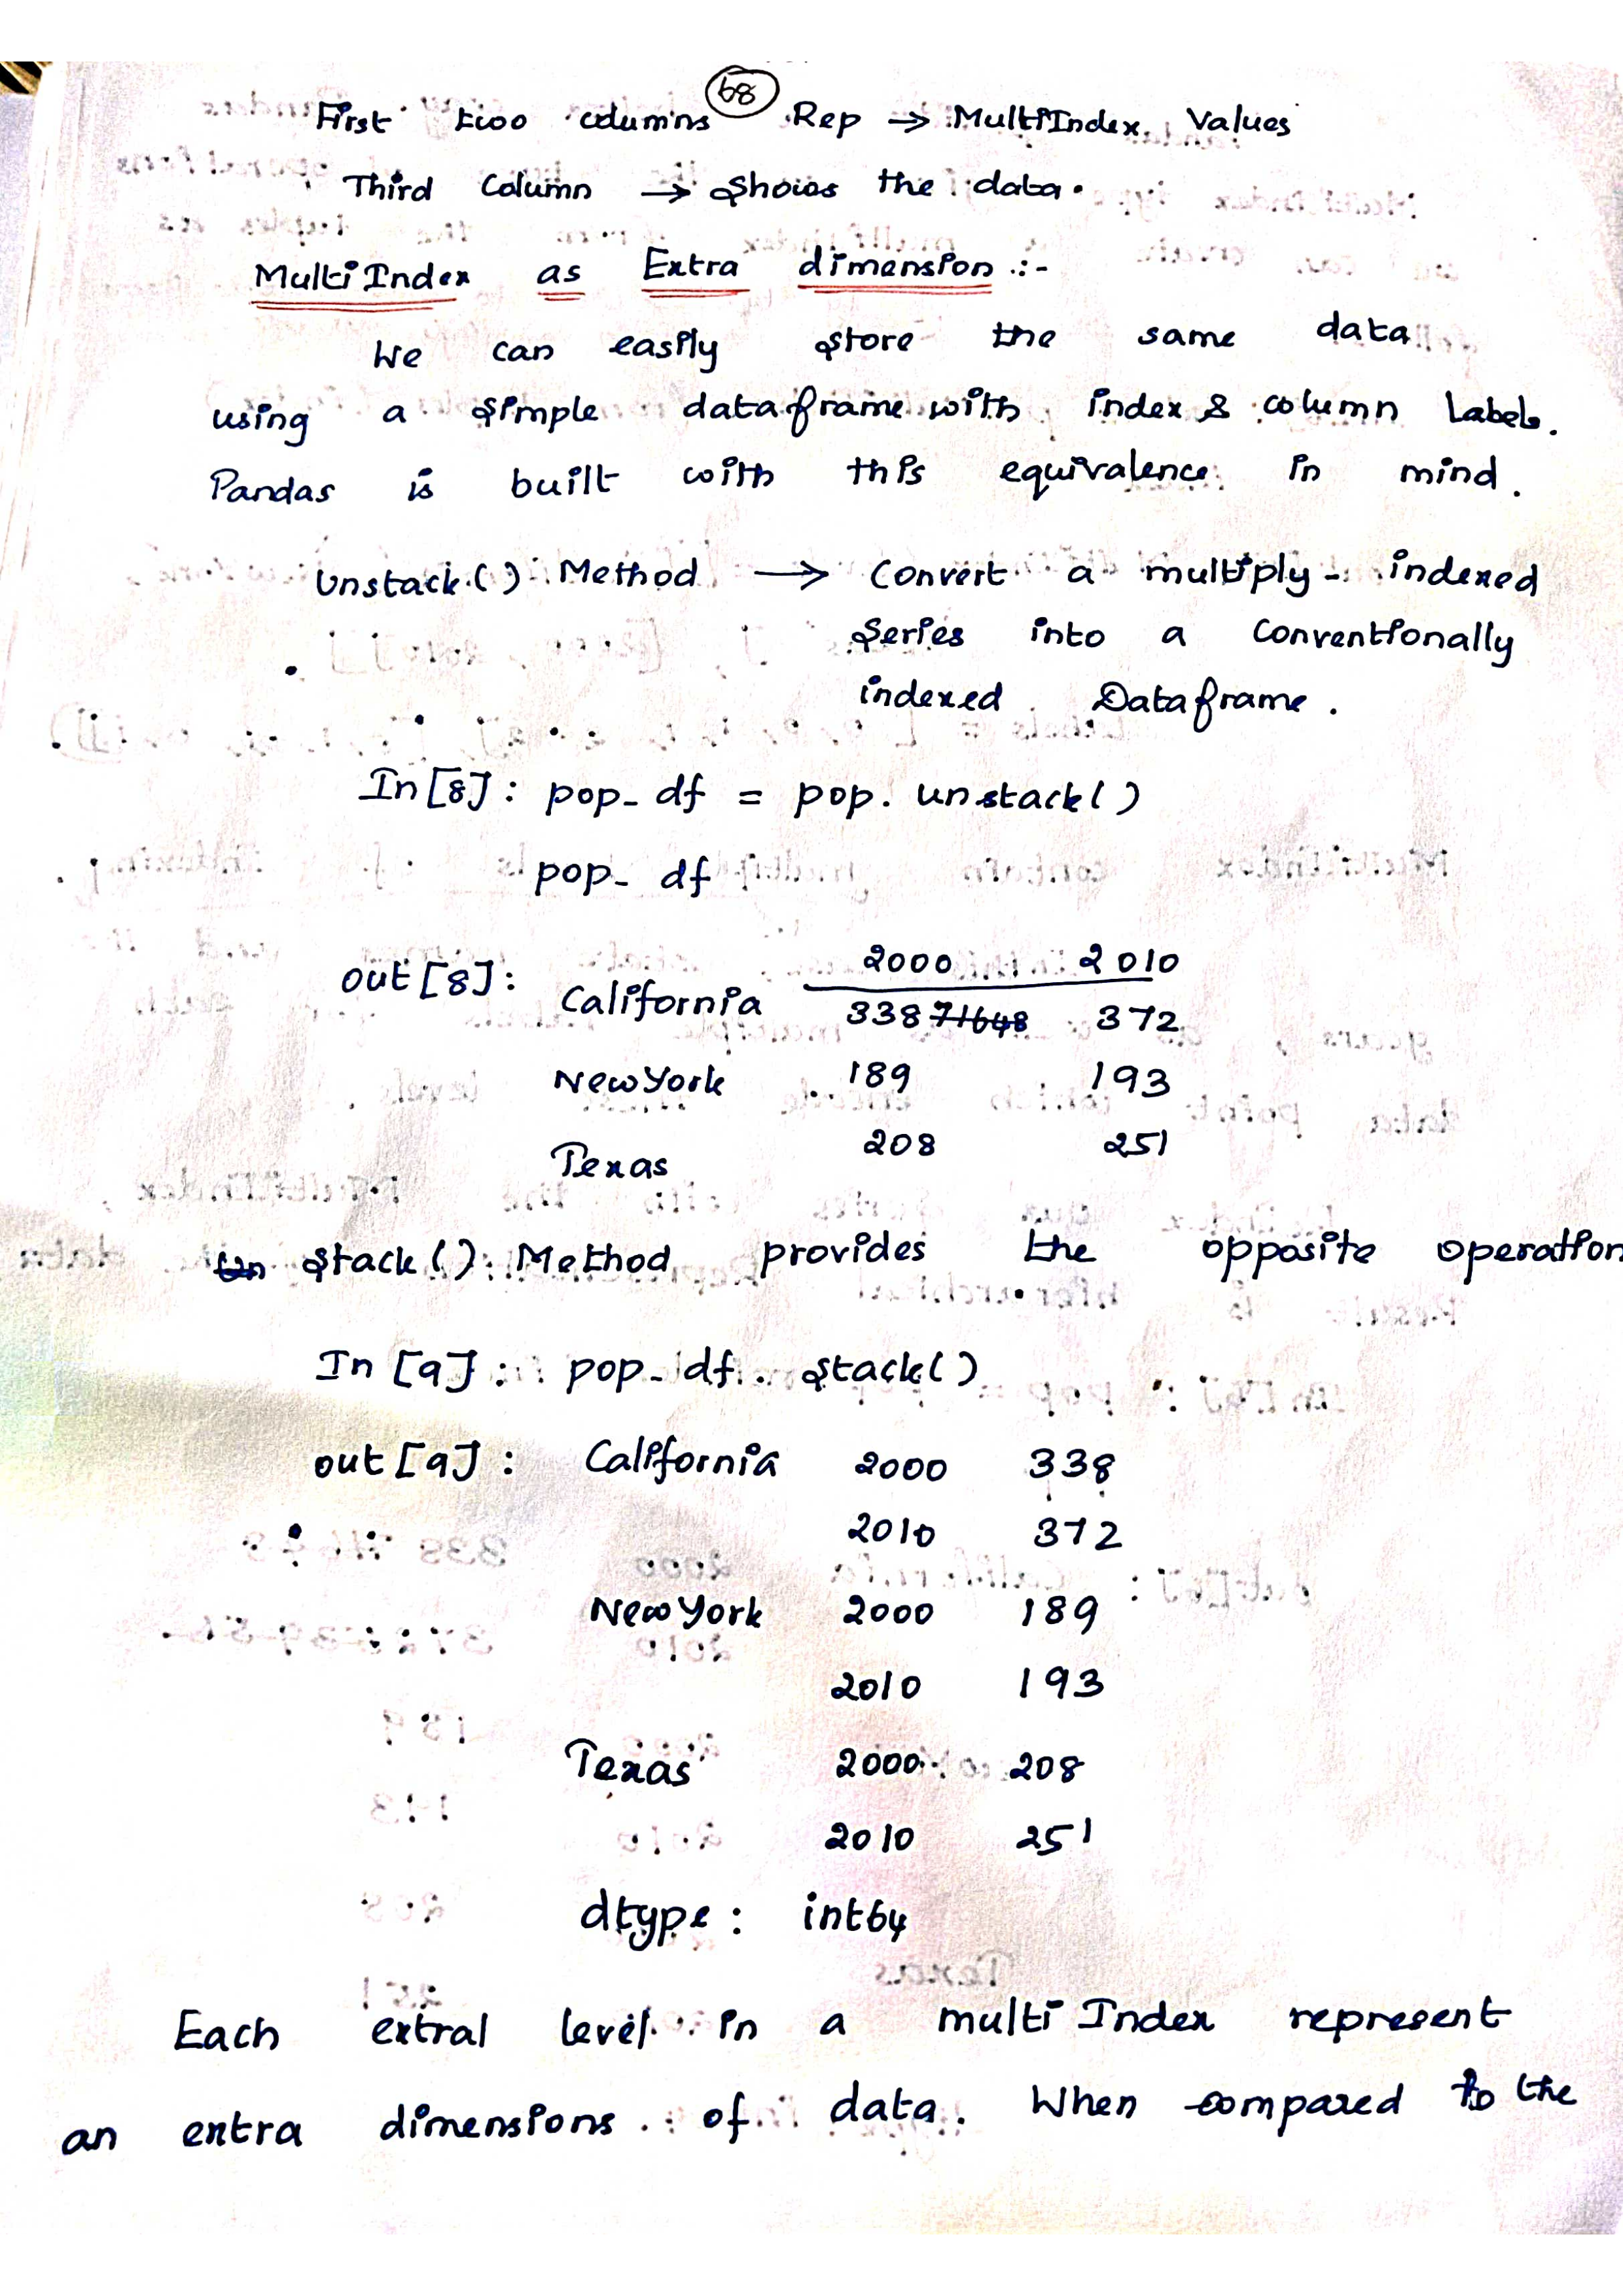 68
First two columns Rep → MultiIndex Values
Third Column → Shows the data.
MultiIndex as Extra dimension :-
We can easily store the same data
using a simple dataframe with index & column Labels.
Pandas is built with this equivalence in mind.
Unstack() Method → Convert a multiply-indexed
Series into a Conventionally
indexed Dataframe.
In[8]: pop_df = pop. unstack()
pop_df
out[8]: 2000 2010
California 338 71648 372
New York 189 193
Texas 208 251
Un stack() Method provides the opposite operation
In [9]: pop_df. stack()
out[9]: California 2000 338
2010 372
New York 2000 189
2010 193
Texas 2000 208
2010 251
dtype: int64
Each extral level in a multi Index represent
an extra dimensions of data. When compared to the